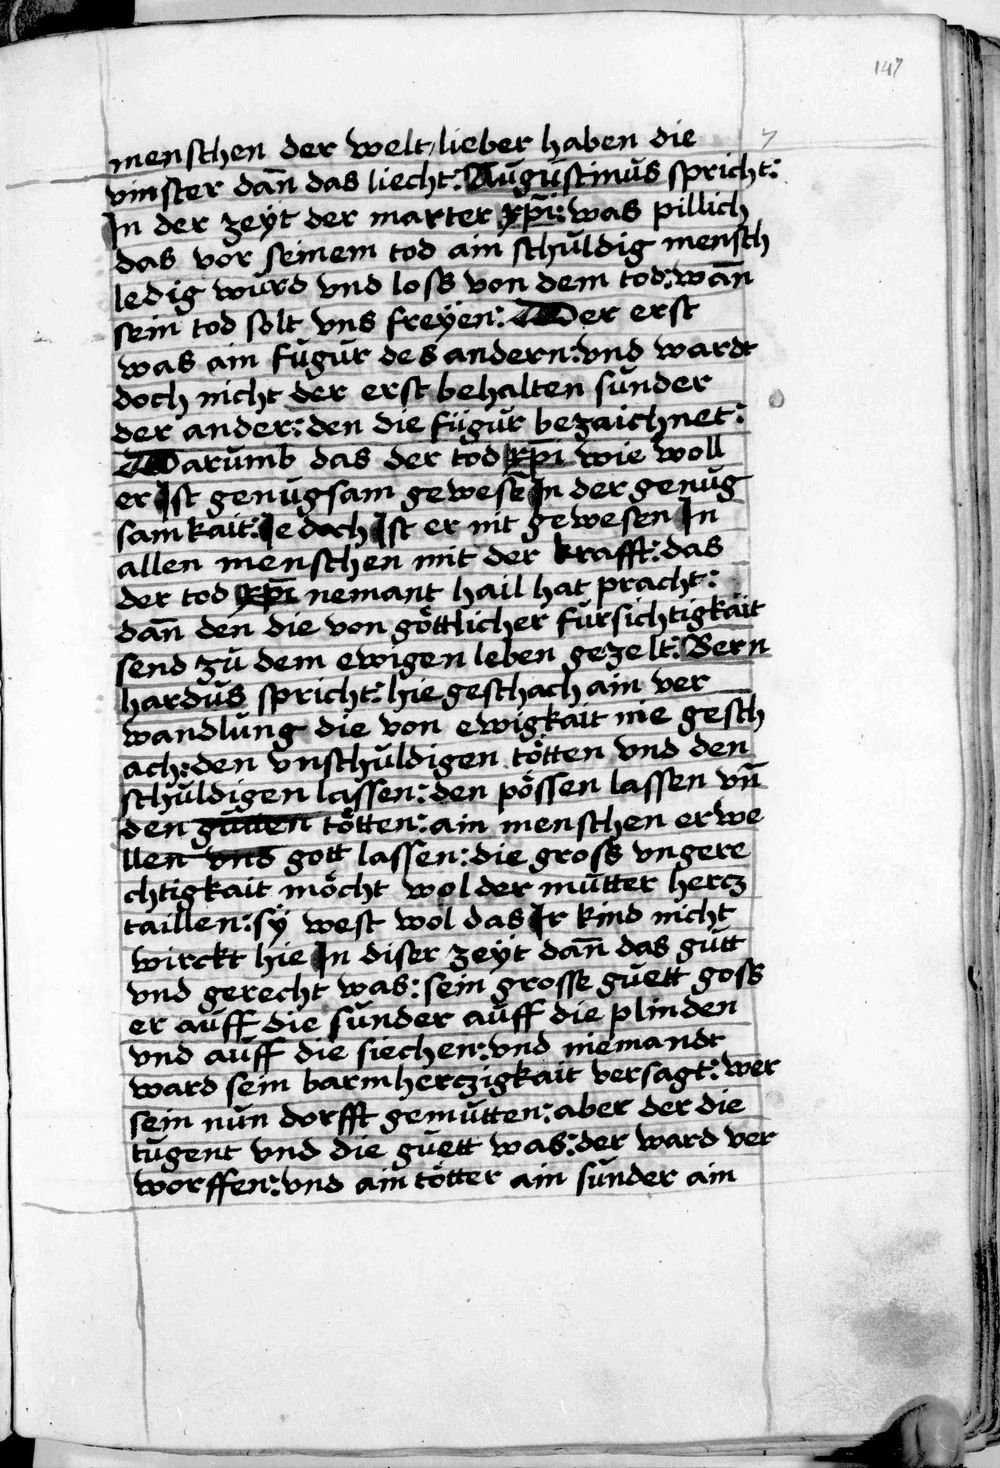 147
menschen der welt / lieber haben die
vinster dan̄ das liecht: Augustinus spricht:
In der zeÿt der marter xp̄i: was pillich
das vor seinem tod ain schuldig mensch
ledig wurd vnd loss von dem tod: wan̄
sein tod solt vns freÿen: Der erst
was ain fugur des andern: vnd wardt
doch nicht der erst behalten sunder
der ander: den die figur bezaichnet:
Darumb das der tod xp̄i wie woll
er Ist genugsam gewesē In der genug
samkait: Ie doch Ist er nit gewesen In
allen menschen mit der krafft: das
der tod xp̄i nemant hail hat pracht:
dan̄ den die von göttlicher fursichtigkait
send zu dem ewigen leben gezelt: Bern
hardus spricht: hie geschach ain ver
wandlung die von ewigkait nie gesch
ach: den vnschuldigen tötten vnd den
schuldigen lassen: den pössen lassen vn̄
den gutten tötten: ain menschen erwe
llen vnd gott lassen: die gross vngere
chtigkait möcht wol der mutter hercz
taillen: sÿ west wol das Ir kind nicht
wirckt hie In diser zeÿt dan̄ das gutt
vnd gerecht was: sein grosse guett goss
er auff die sunder auff die plinden
vnd auff die siechen: vnd niemandt
ward sein barmherczigkait versagt: wer
sein nun dorfft gemutten: aber der die
tugent vnd die guett was: der ward ver
worffen: vnd ain tötter ain sunder ain